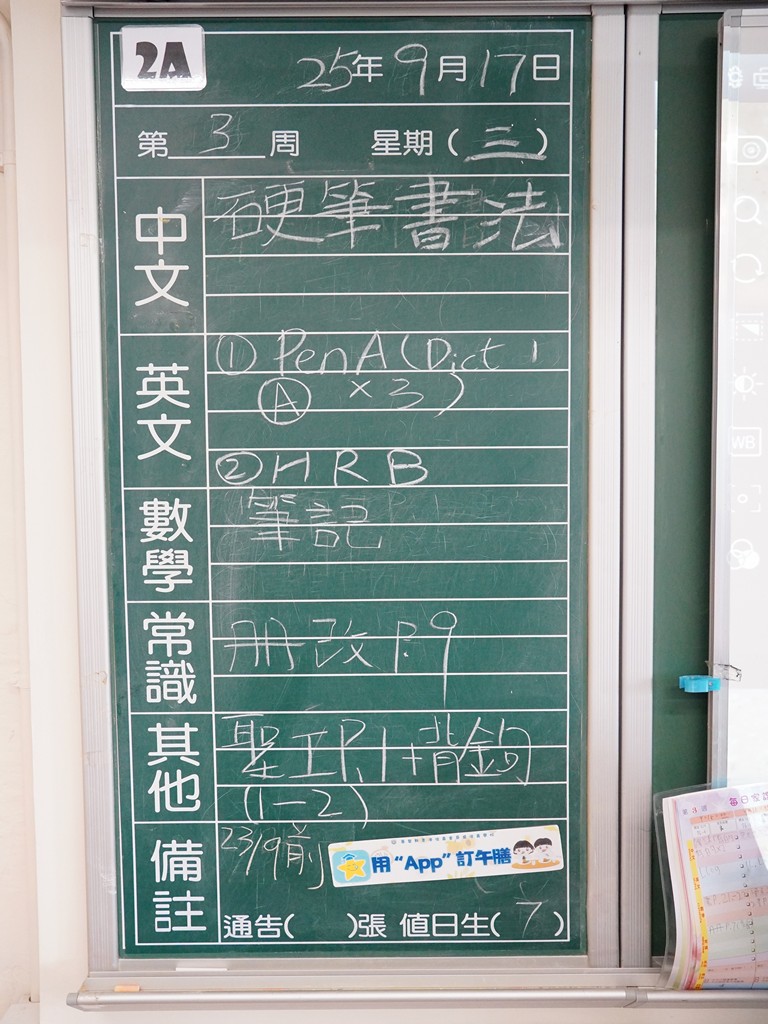 2A
25年9月17日
第3周 星期(三)
中文
硬筆書法
英文
① PenA (Dict 1
Ⓐ × 3)
② H R B
數學
筆記
常識
冊改P.9
其他
聖工P.1+背金句
(1-2)
備註
23/9前
用“App”訂午膳
通告( )張 值日生(7)
WB